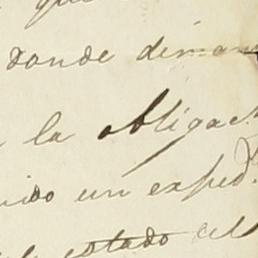 que
donde diman
la obligac
ido un exped.
estado del